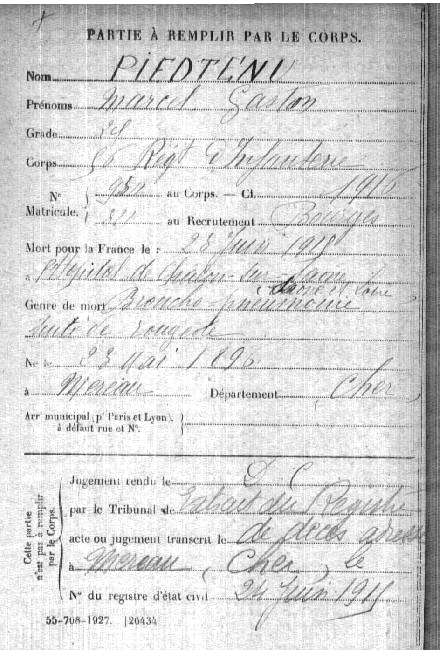 PARTIE À REMPLIR PAR LE CORPS.
Nom PIEDTENU
Prénoms Marcel Gaston
Grade
Corps Rég^t d'Infanterie
N° Matricule. 950 au Corps. — Cl. 1916
au Recrutement Bourges
Mort pour la France le Juin 1915
à Hôpital de Chalon-sur-Saône
Saône et Loire
Genre de mort Broncho-pneumonie
suite de rougeole
Né le 23 Mai 1896
à Mereau Département Cher
Arr^t municipal (p^r Paris et Lyon),
à défaut rue et N°.
Cette partie n'est pas à remplir par le Corps.
Jugement rendu le
par le Tribunal de Extrait du Registre
acte ou jugement transcrit le de décès adressé
à Mereau (Cher) le
N° du registre d'état civil 24 Juin 1915
55-708-1927. [26434